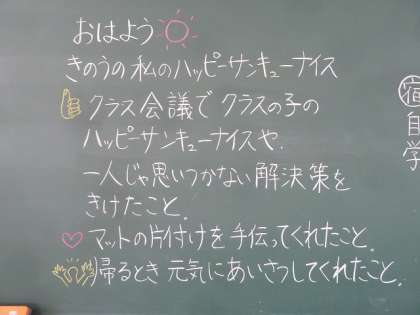 おはよう
きのうの私のハッピーサンキューナイス
クラス会議でクラスの子の
ハッピーサンキューナイスや、
一人じゃ思いつかない解決策を
きけたこと。
マットの片付けを手伝ってくれたこと。
帰るとき元気にあいさつしてくれたこと。
宿
自学